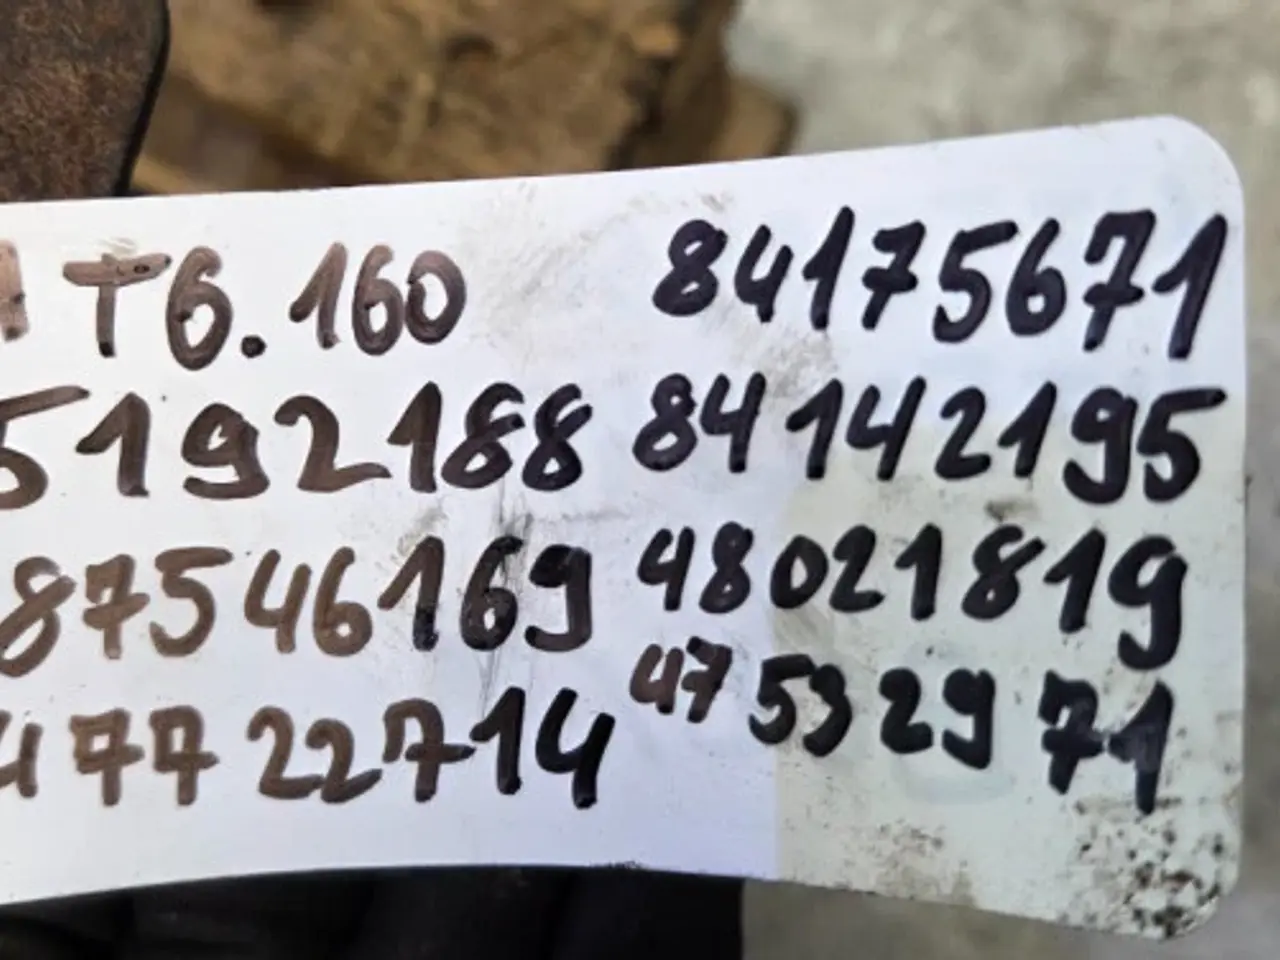 T6.160 84175671
5192188 84142195
87546169 48021819
47722714 47532971